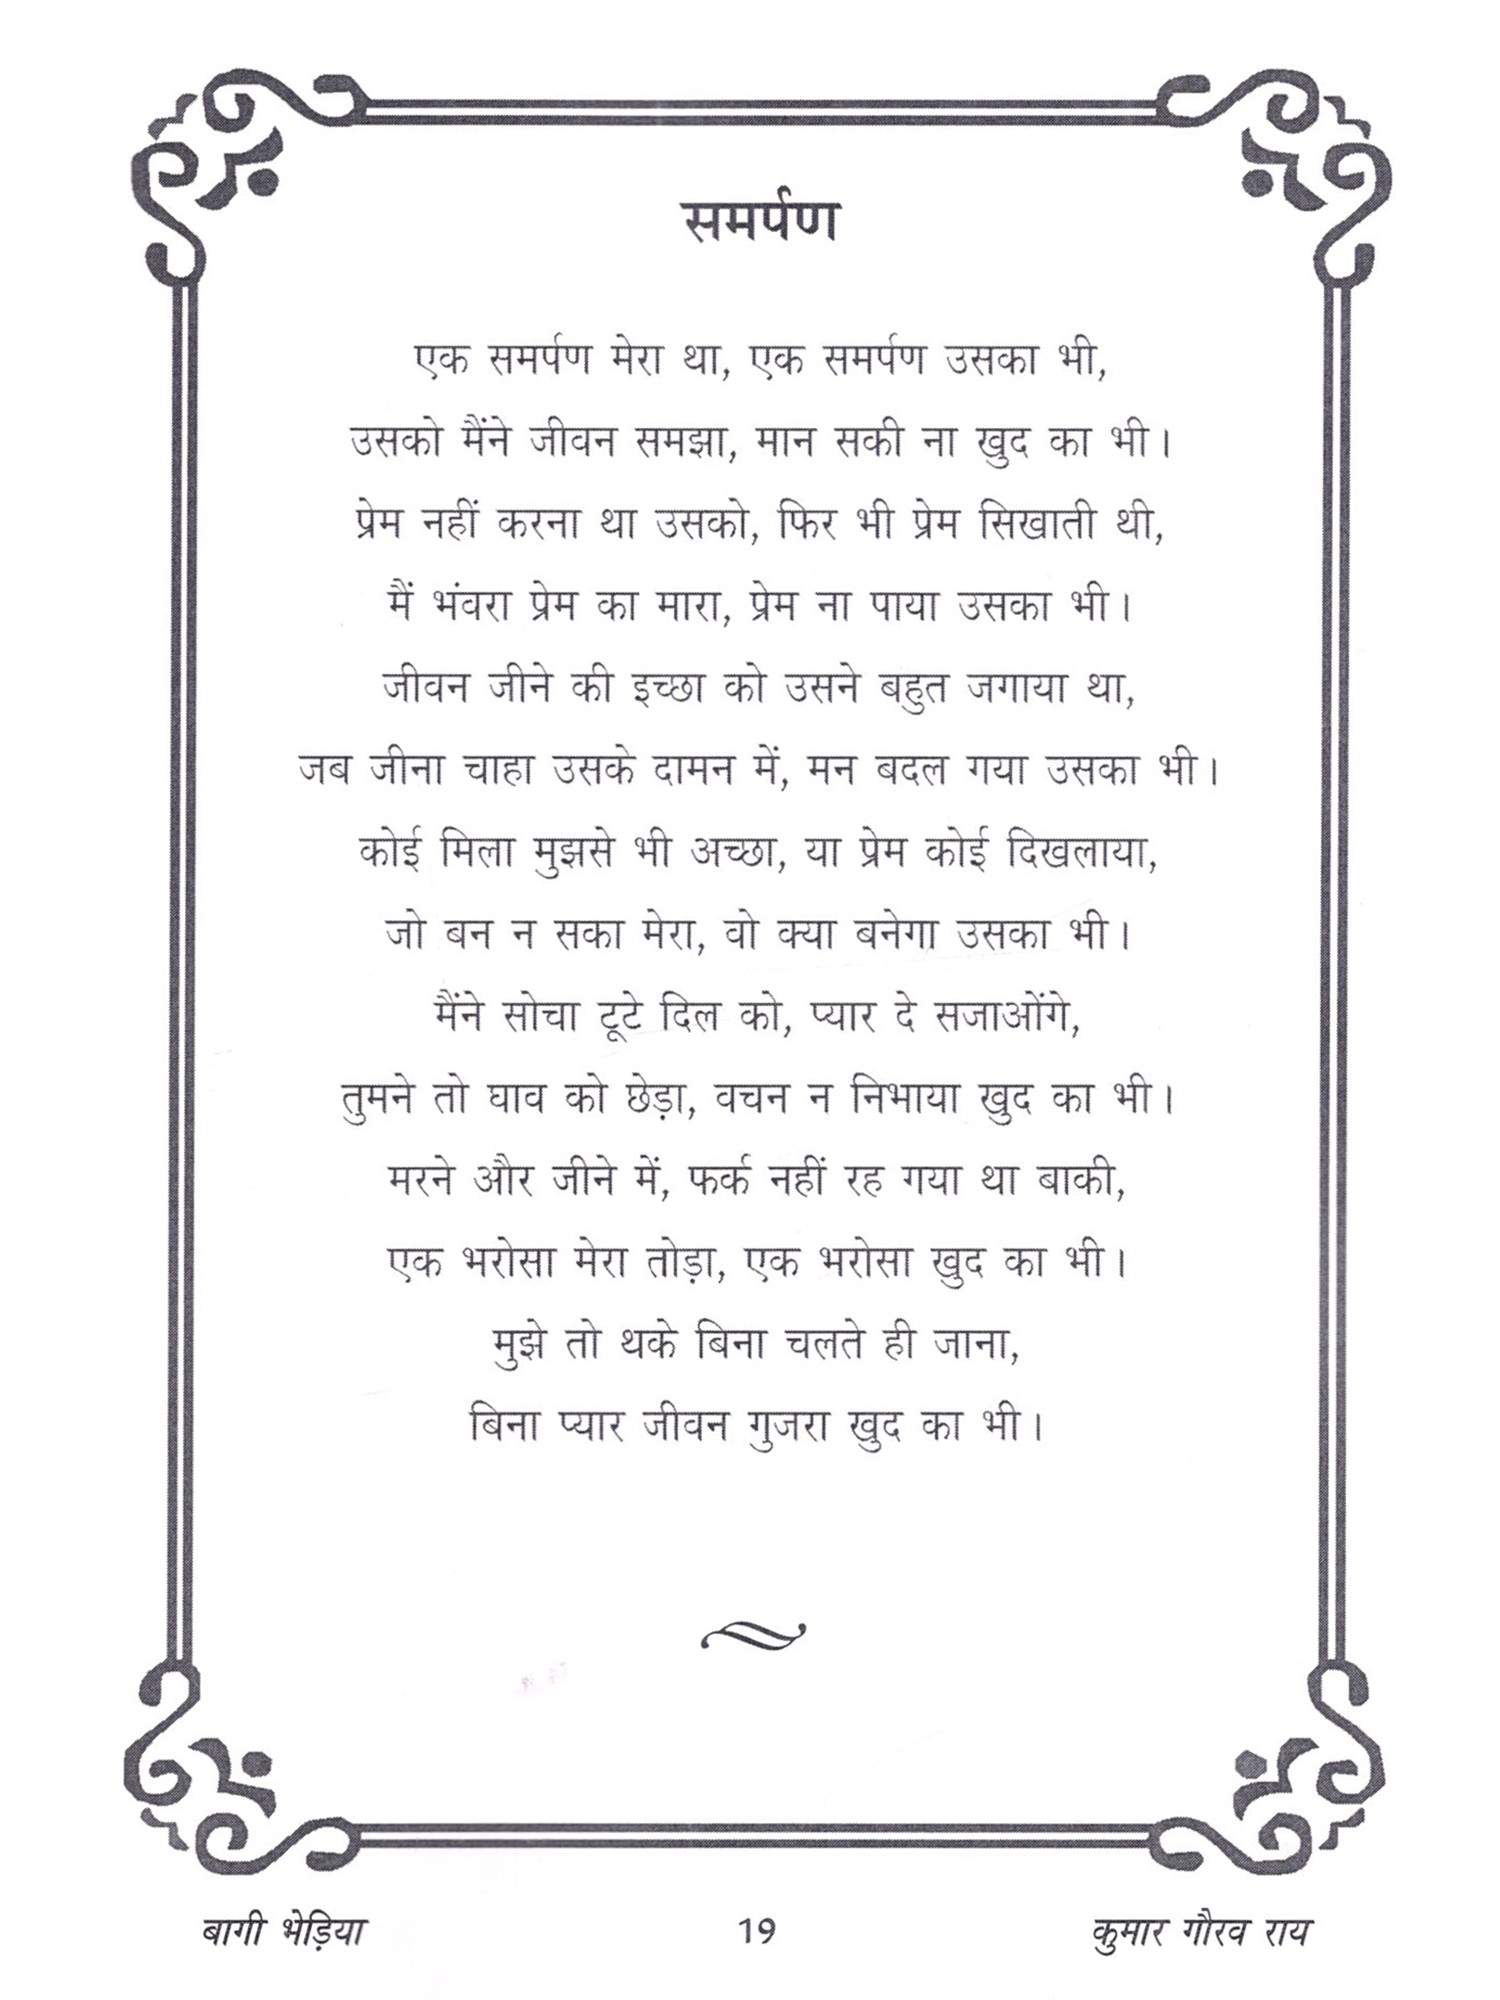 समर्पण
एक समर्पण मेरा था, एक समर्पण उसका भी,
उसको मैंने जीवन समझा, मान सकी ना खुद का भी।
प्रेम नहीं करना था उसको, फिर भी प्रेम सिखाती थी,
मैं भंवरा प्रेम का मारा, प्रेम ना पाया उसका भी।
जीवन जीने की इच्छा को उसने बहुत जगाया था,
जब जीना चाहा उसके दामन में, मन बदल गया उसका भी।
कोई मिला मुझसे भी अच्छा, या प्रेम कोई दिखलाया,
जो बन न सका मेरा, वो क्या बनेगा उसका भी।
मैंने सोचा टूटे दिल को, प्यार दे सजाओंगे,
तुमने तो घाव को छेड़ा, वचन न निभाया खुद का भी।
मरने और जीने में, फर्क नहीं रह गया था बाकी,
एक भरोसा मेरा तोड़ा, एक भरोसा खुद का भी।
मुझे तो थके बिना चलते ही जाना,
बिना प्यार जीवन गुजरा खुद का भी।
बागी भेड़िया 19 कुमार गौरव राय